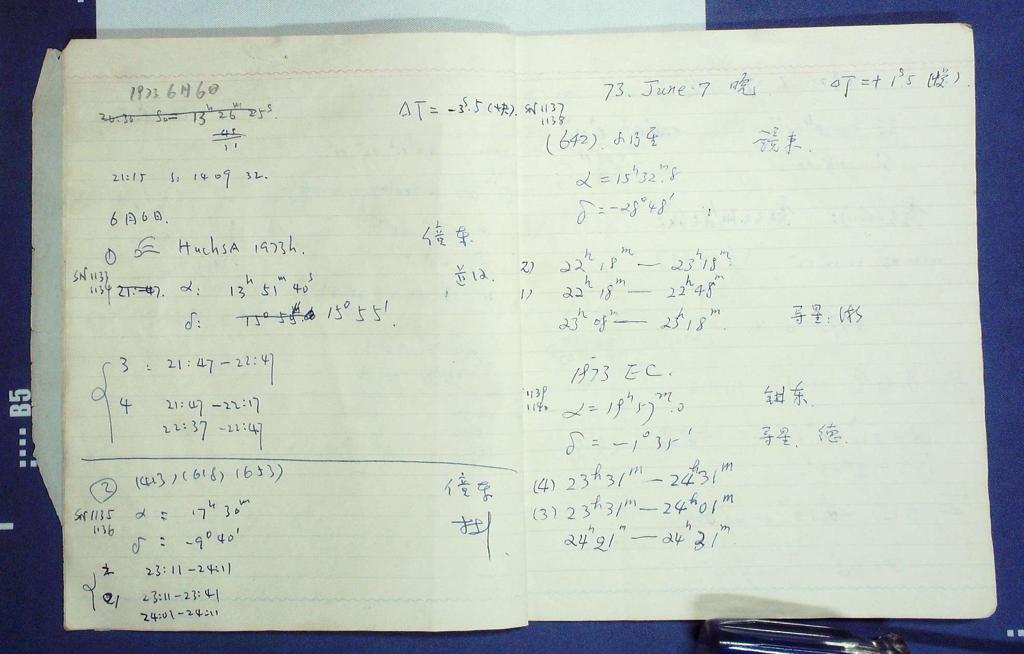 1973 6月6日
20:30 S0= 13h 26m 25s
45
ΔT = -3s.5 (快)
21:15 S: 14 09 32.
6月6日.
① HuchsA 1973h.
SN 1133
1134
21:47
α: 13h 51m 40s
δ: 15° 55' 15° 55'.
3: 21:47-22:47
4 21:47-22:17
22:37-22:47
② (43), (618), (653)
SN 1135
1136
α = 17h 30m
δ = -9° 40'
23:11-24:11
23:11-23:41
24:01-24:11
73. June. 7 晚 ΔT = + 1s5 (慢)
SN 1137
1138
(642). 小行星
α = 15h 32m.8
δ = -28° 48'
2) 22h 18m — 23h 18m
1) 22h 18m — 22h 48m
23h 08m — 23h 18m
导星:
1973 EC.
1139
1140
α = 19h 57m.0
δ = -1° 35'
导星. 德.
(4) 23h 31m — 24h 31m
(3) 23h 31m — 24h 01m
24h 21m — 24h 31m
B5